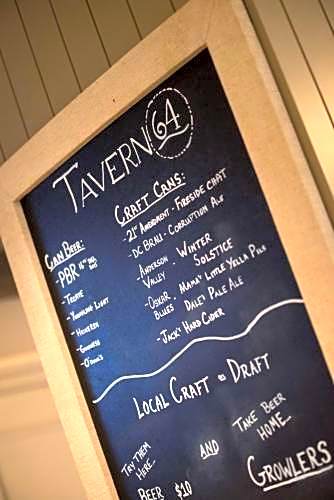 TAVERN 64
CAN BEER:
- PBR 16oz
- TECATE
- YUENGLING LIGHT
- HEINEKEN
- GUINNESS
- O'DOUL'S
CRAFT CANS:
- 21ST AMENDMENT - FIRESIDE CHAT
- DC BRAU - CORRUPTION ALE
- ANDERSON VALLEY - WINTER SOLSTICE
- OSKAR BLUES - MAMA'S LITTLE YELLA PILS
DALE'S PALE ALE
- JACK'S HARD CIDER
LOCAL CRAFT ON DRAFT
TRY THEM
HERE
AND
TAKE BEER
HOME
BEER $10
GROWLERS